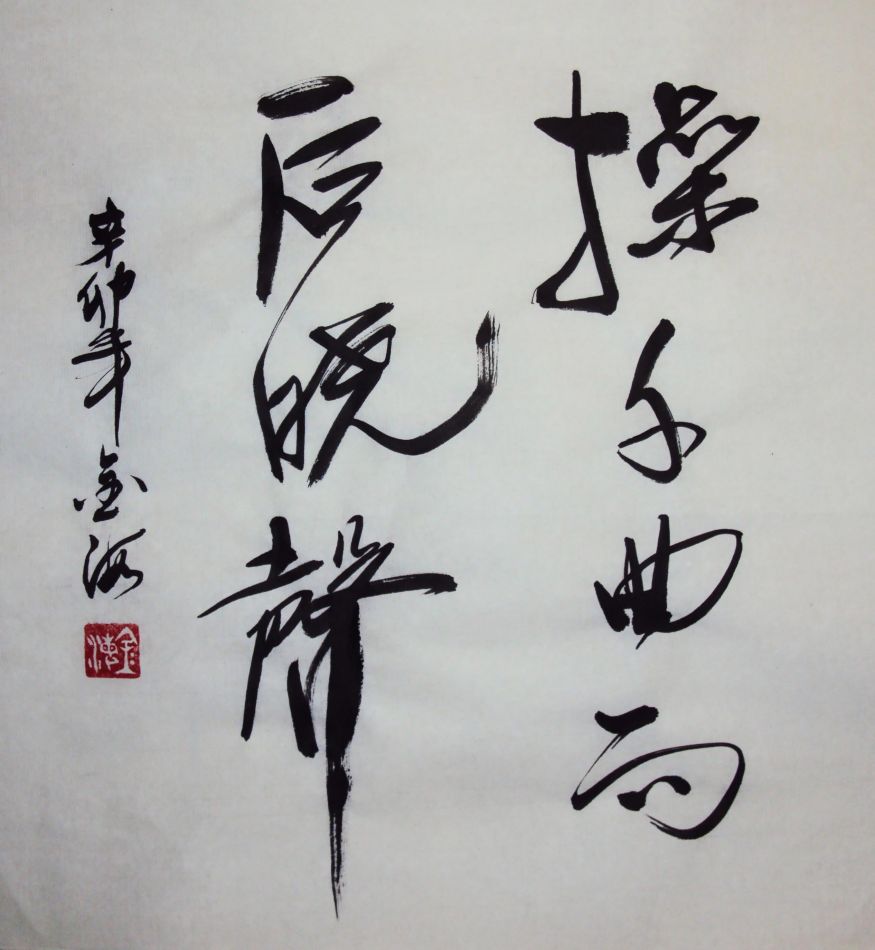 操千曲而
后晓聲
辛卯年金海
金海